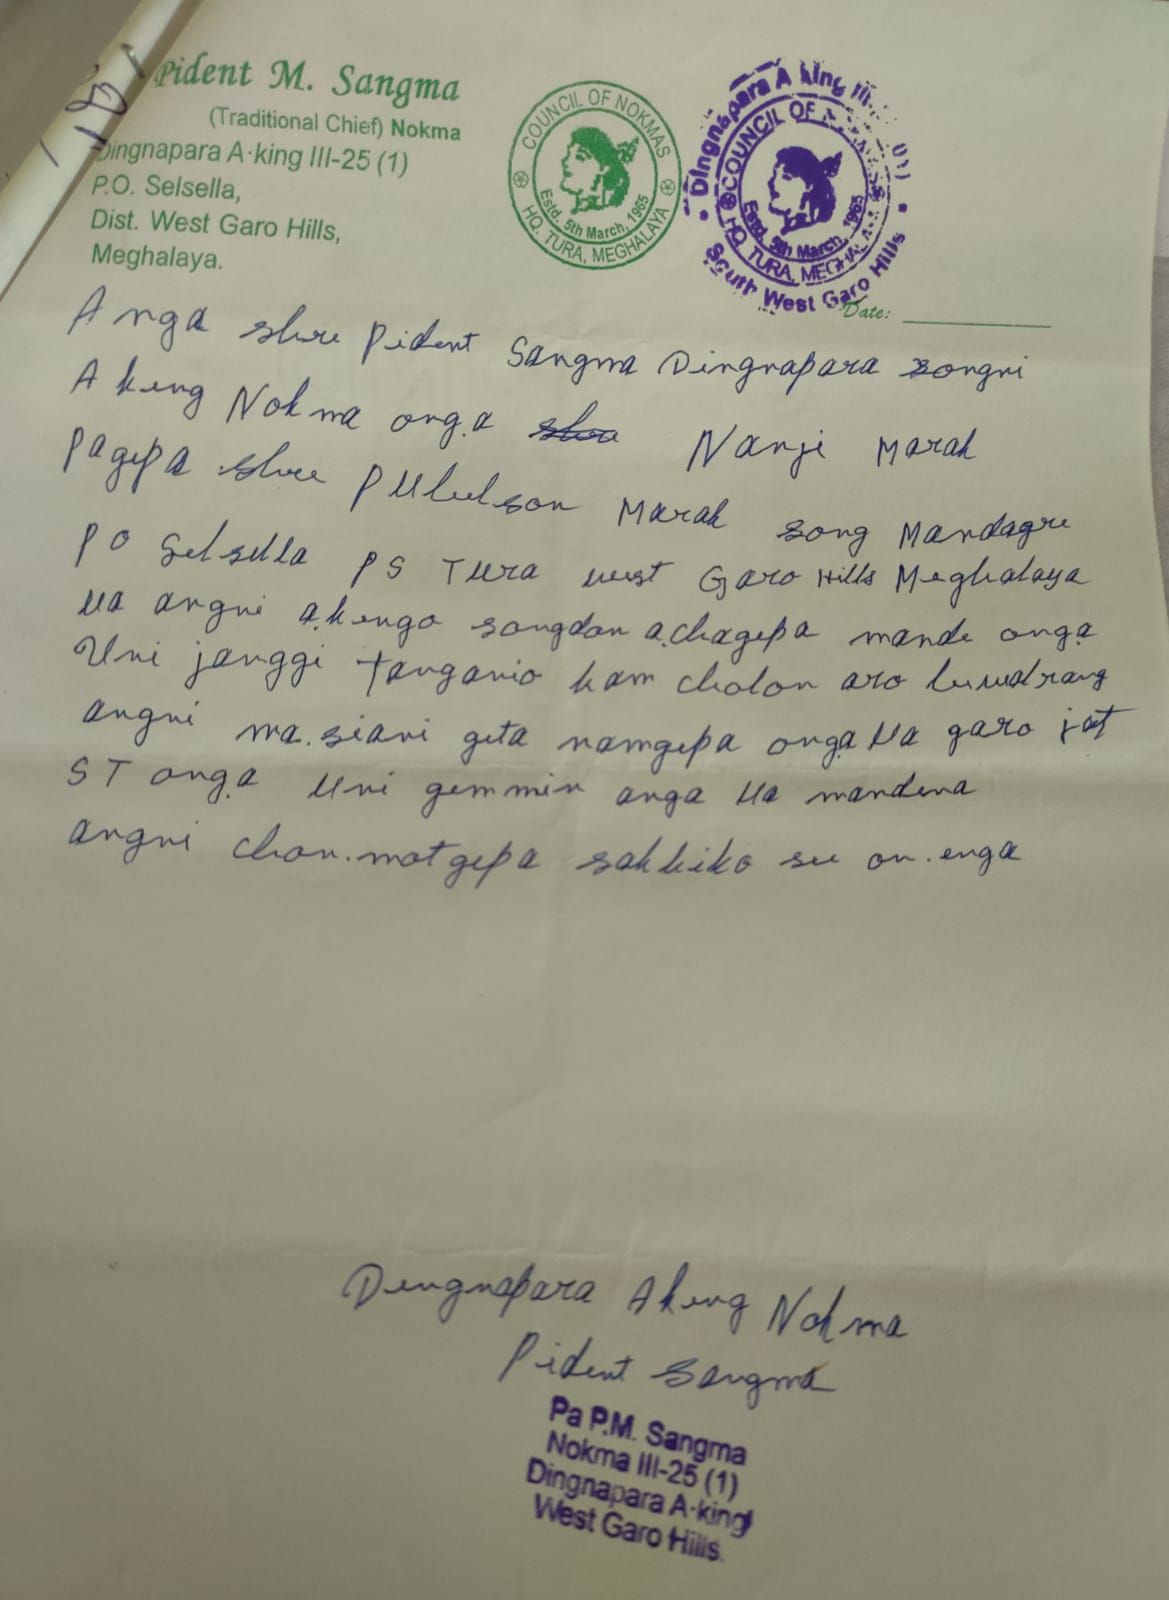 Pident M. Sangma
(Traditional Chief) Nokma
Dingnapara A·king III-25 (1)
P.O. Selsella,
Dist. West Garo Hills,
Meghalaya.
COUNCIL OF NOKMAS
Estd. 5th March, 1965
HQ. TURA, MEGHALAYA
Dingnapara A king III
COUNCIL OF
Estd. 5th March, 1965
HQ. TURA, MEGHALAYA
South West Garo Hills
Date:
Anga shre Pident Sangma Dingnapara songni
A king Nokma ong.a Nanje Marak
Pagepa shre Marak song Mandagre
PO Selsella PS Tura West Garo Hills Meghalaya
Ua angni a.kingo songdon a.chagepa mande onga
Uni janggi tanganio kam cholon aro
angni ma.siani gita namgepa ong.a Ua garo jat
ST ong.a Uni gimmin anga Ua mandena
angni chan.motgepa sakkiko see on.enga
Dingnapara Aking Nokma
Pident Sangma
Pa P.M. Sangma
Nokma III-25 (1)
Dingnapara A·king
West Garo Hills.